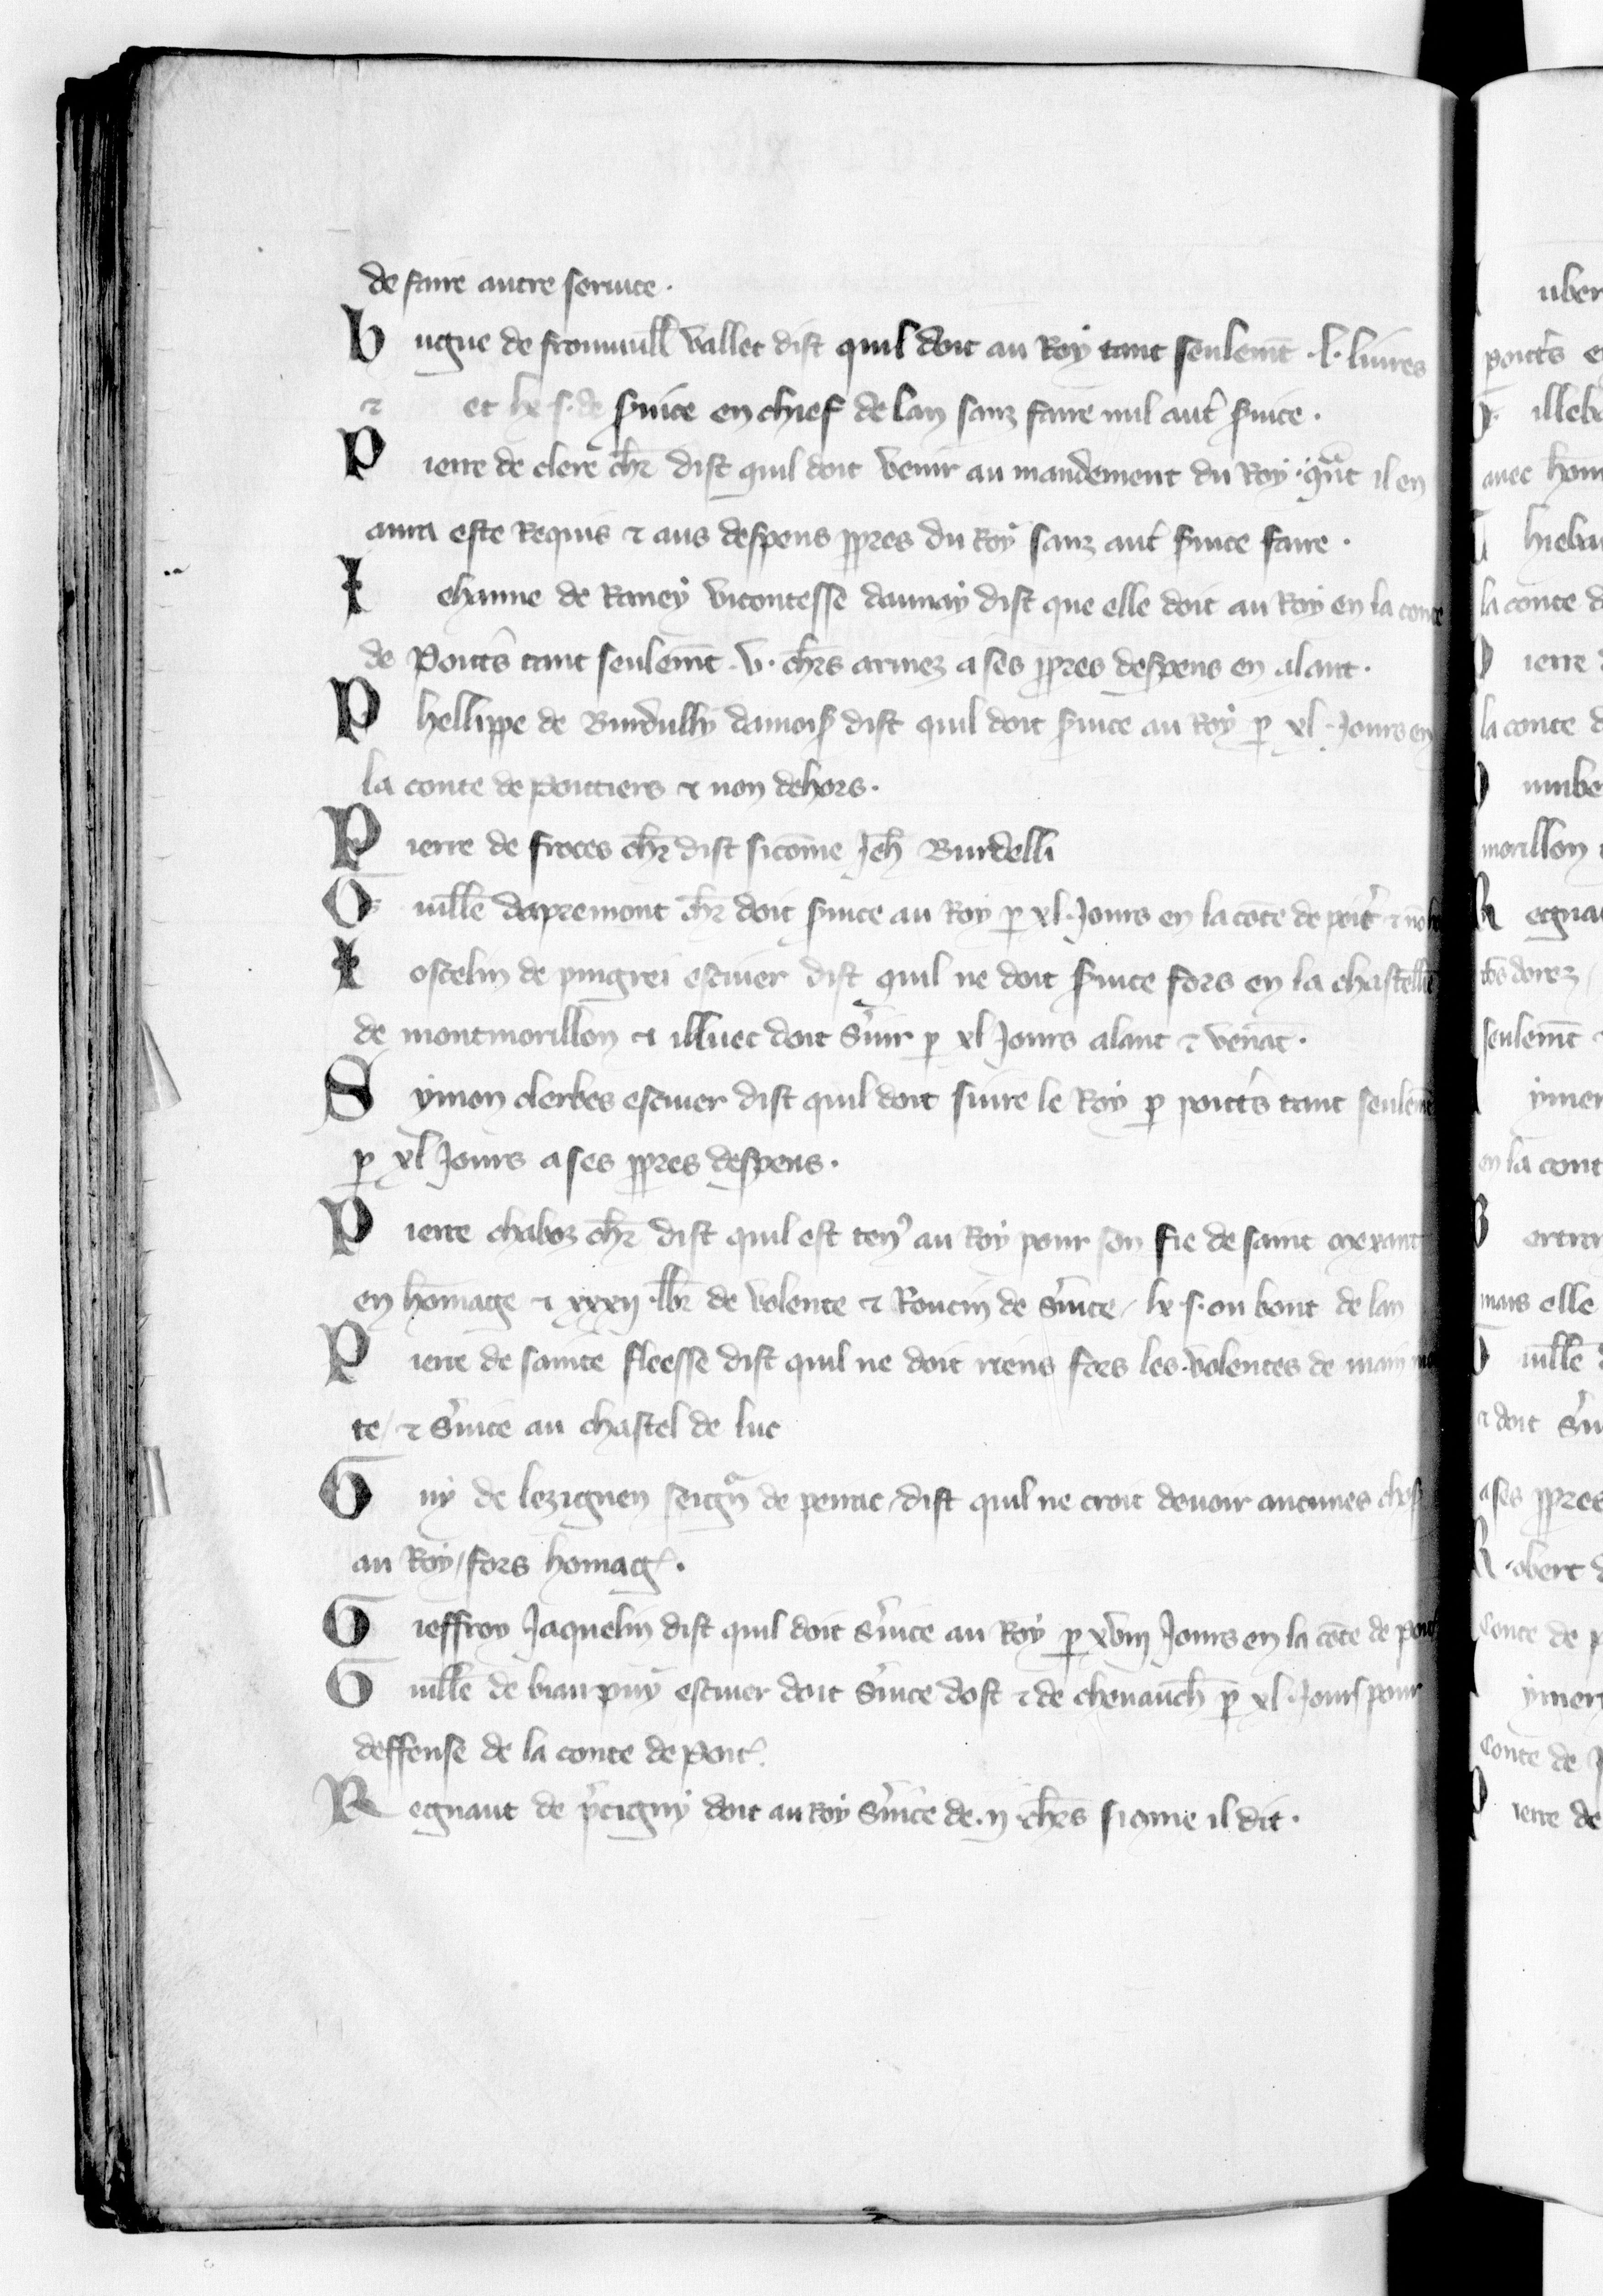 de faire autre seruice .
Hugue de fromuill vallet dist quil doit au Roy tant seulemt .l. liures
⁊ et lx .s. de suice en chief de lan sanz faire nul aut suice .
Pierre de clere chr dist quil doit venir au mandement du Roy . qnt il en
aura este Requis ⁊ aus despens ppres du Roy sanz aut suice faire .
Iehanne de Raney vicontesse daunay dist que elle doit au Roy en la conte
de Poitts tant seulemt .v. chrs armez a ses ppres despens en alant .
Phellippe de Burdully damois dist quil doit suice au Roy p xl . Jours en
la conte de poitiers ⁊ non dehors .
Pierre de froces chr dist sicōme Jeh Burdelli
Guille dapremont chr doit suice au Roy p xl . Jours en la cōte de poit ⁊ nō
Ioscelin de pingrei escuier dist quil ne doit suice fors en la chastelle
de montmorillon ⁊ illuec doit suir p xl Jours alant ⁊ venāt .
Symon clerbes escuier dist quil doit suire le Roy p poitts tant seulemt
p xl Jours a ses ppres despens .
Pierre chaboz chr dist quil est ten au Roy pour son fie de saint mexant
en hōmage ⁊ xxxij . lbr de volente ⁊ Roucin de suice / lx .s. ou bout de lan
Pierre de sainte fleesse dist quil ne doit riens fors les . volentes de main mo
te / ⁊ suice au chastel de luc
Guy de lezignen seign de perac / dist quil ne croit deuoir aucunes chos
au Roy / fors homag .
Gieffroy Jaquelin dist quil doit suice au Roy p xviij Jours en la cōte de poit
Guille de biaupuy escuier doit suice dost ⁊ de cheuauch p xl . Jours pour
deffense de la conte de poit .
Regnaut de pcigny doit au Roy suice de .ij. chrs sicōme il dit .